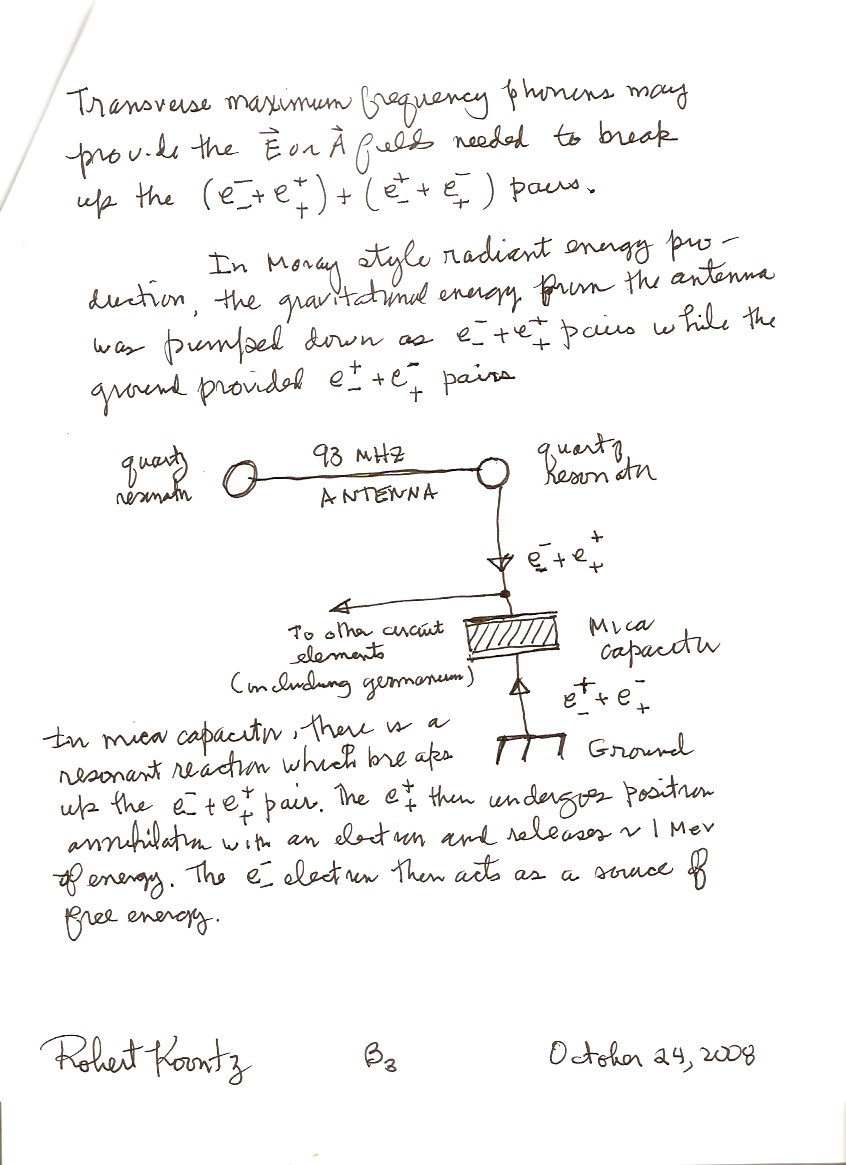 Transverse maximum frequency phonons may
provide the E⃗ or A⃗ fields needed to break
up the (e₋⁻ + e₊⁺) + (e₋⁺ + e₊⁻) pairs.
In Moray style radiant energy pro-
duction, the gravitational energy from the antenna
was pumped down as e₋⁻ + e₊⁺ pairs while the
ground provided e₋⁺ + e₊⁻ pairs
quartz
resonator
93 MHZ
ANTENNA
quartz
Resonator
e₋⁻ + e₊⁺
To other circuit
elements
(including germanium)
Mica
capacitor
e₋⁺ + e₊⁻
Ground
In mica capacitor, there is a
resonant reaction which breaks
up the e₋⁻ + e₊⁺ pair. The e₊⁺ then undergoes positron
annihilation with an electron and releases ~ 1 Mev
of energy. The e₋⁻ electron then acts as a source of
free energy.
Robert Koontz
B₃
October 24, 2008